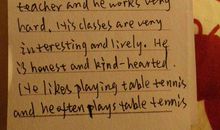 teacher and he works very
hard. His classes are very
interesting and lively. He
is honest and kind-hearted.
He likes playing table tennis
and he often plays table tennis